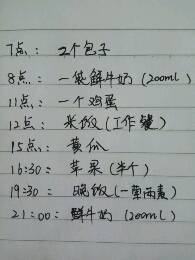 7点: 2个包子
8点: 一袋鲜牛奶(200ml)
11点: 一个鸡蛋
12点: 米饭(工作餐)
15点: 黄瓜
16:30: 苹果(半个)
19:30: 晚饭(一荤两素)
21:00: 鲜牛奶(200ml)